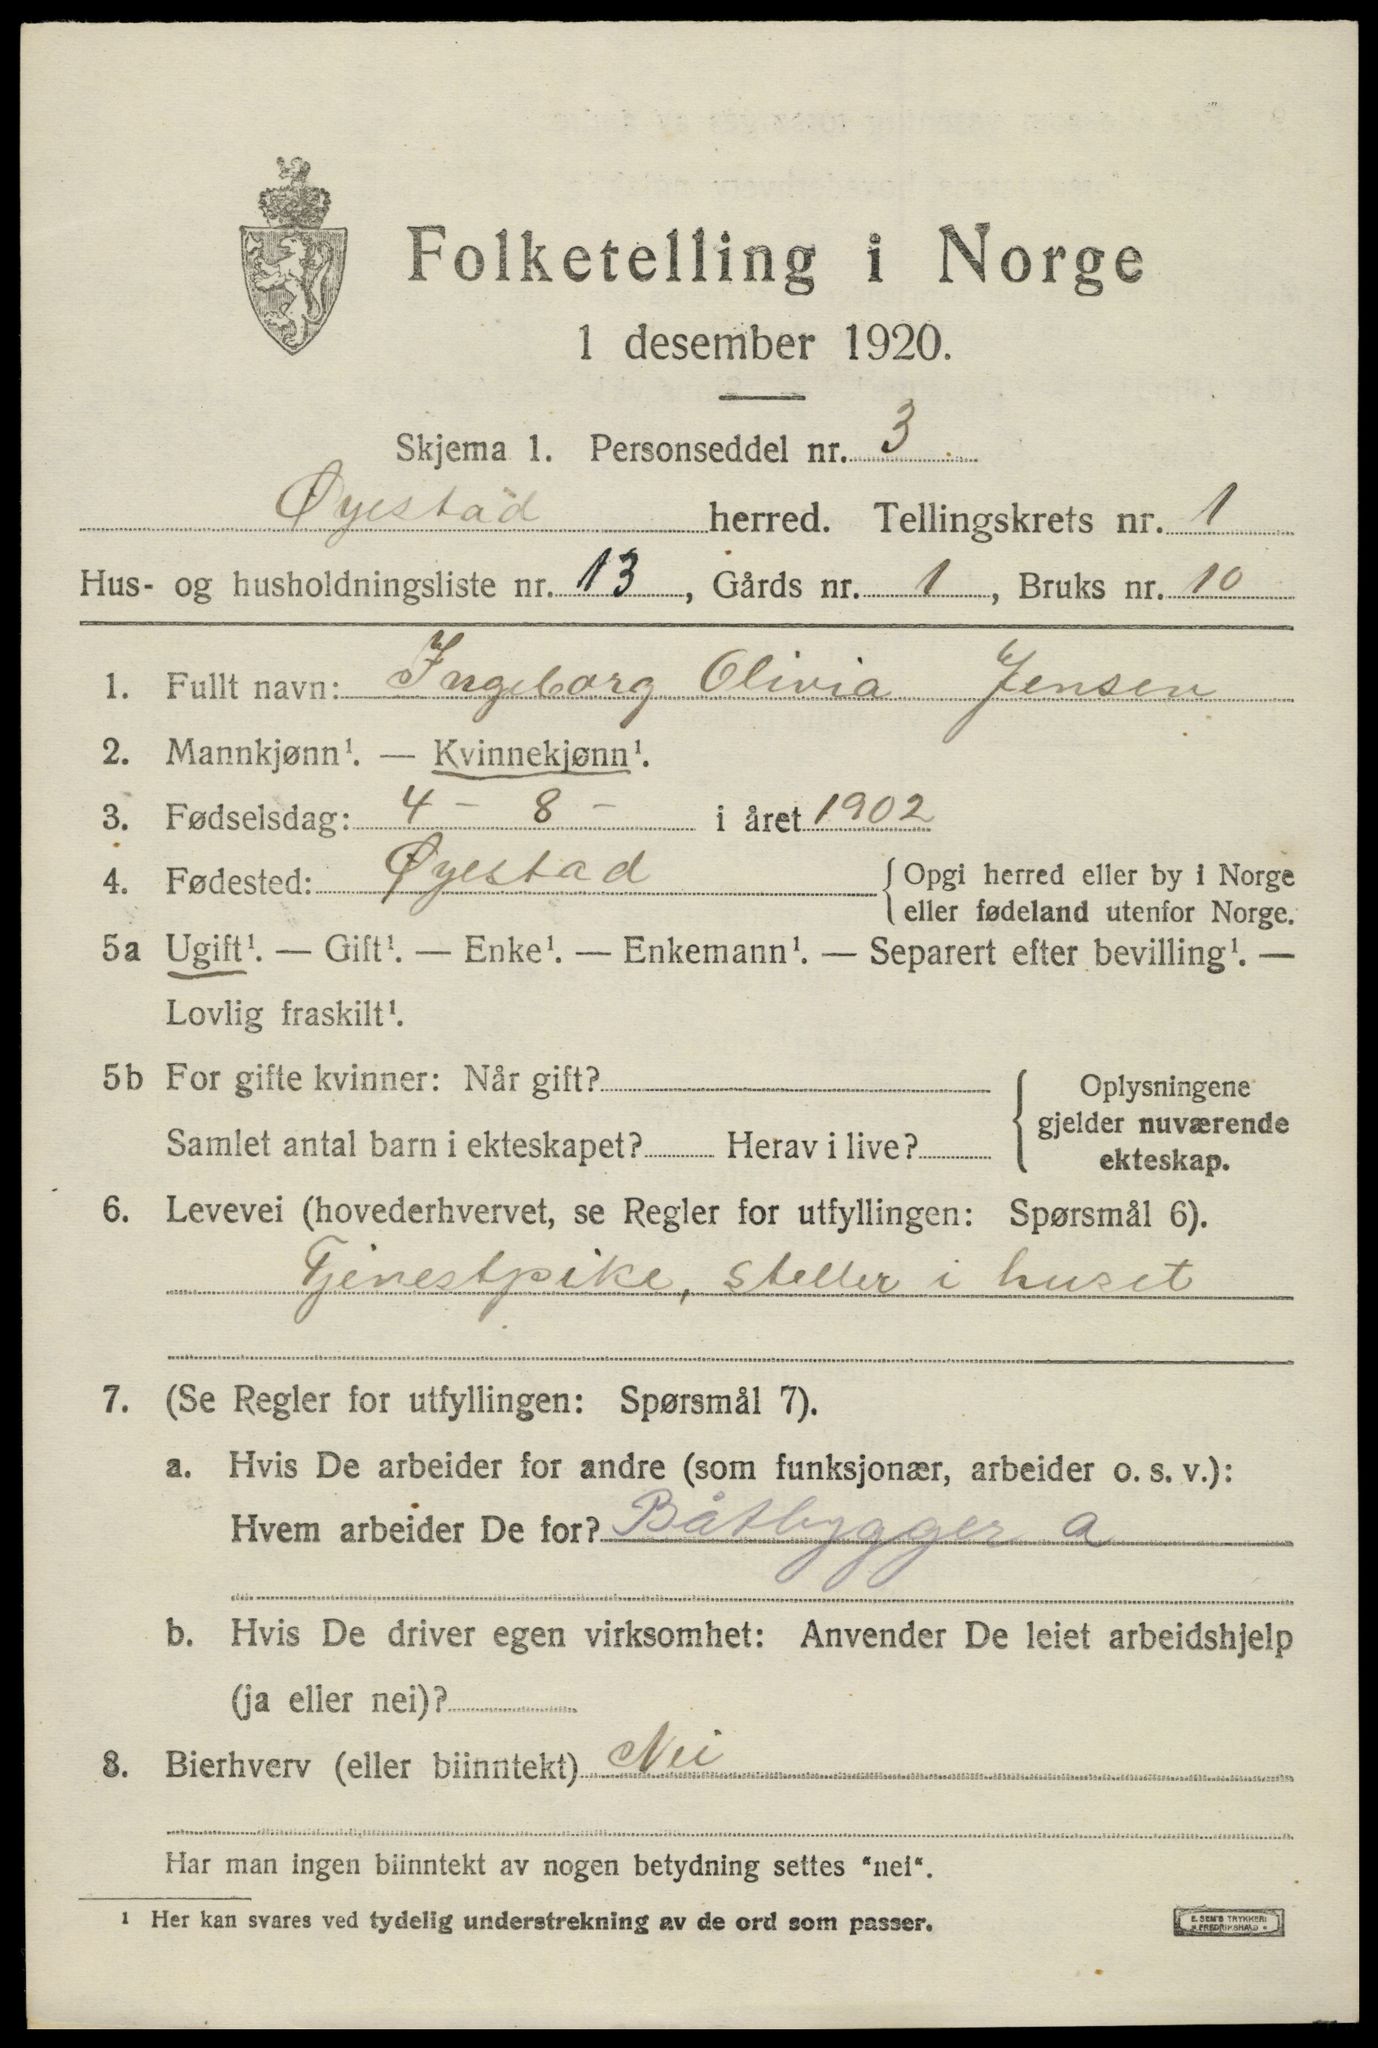 Folketelling i Norge
1 desember 1920.
Skjema 1. Personseddel nr. 3
Øyestad herred. Tellingskrets nr. 1
Hus- og husholdningsliste nr. 13, Gårds nr. 1, Bruks nr. 10
1. Fullt navn: Ingeborg Olivia Jensen
2. Mannkjønn¹. — Kvinnekjønn¹.
3. Fødselsdag: 4 - 8 - i året 1902
4. Fødested: Øyestad { Opgi herred eller by i Norge
eller fødeland utenfor Norge.
5a Ugift¹. — Gift¹. — Enke¹. — Enkemann¹. — Separert efter bevilling¹. —
Lovlig fraskilt¹.
5b For gifte kvinner: Når gift?
Samlet antal barn i ekteskapet? Herav i live?
Oplysningene
gjelder nuværende
ekteskap.
6. Levevei (hovederhvervet, se Regler for utfyllingen: Spørsmål 6).
Tjenestpike, steller i huset
7. (Se Regler for utfyllingen: Spørsmål 7).
a. Hvis De arbeider for andre (som funksjonær, arbeider o. s. v.):
Hvem arbeider De for? Båtbygger a
b. Hvis De driver egen virksomhet: Anvender De leiet arbeidshjelp
(ja eller nei)?
8. Bierhverv (eller biinntekt) Nei
Har man ingen biinntekt av nogen betydning settes "nei".
¹ Her kan svares ved tydelig understrekning av de ord som passer.
E. SEM'S TRYKKERI
FREDRIKSHALD